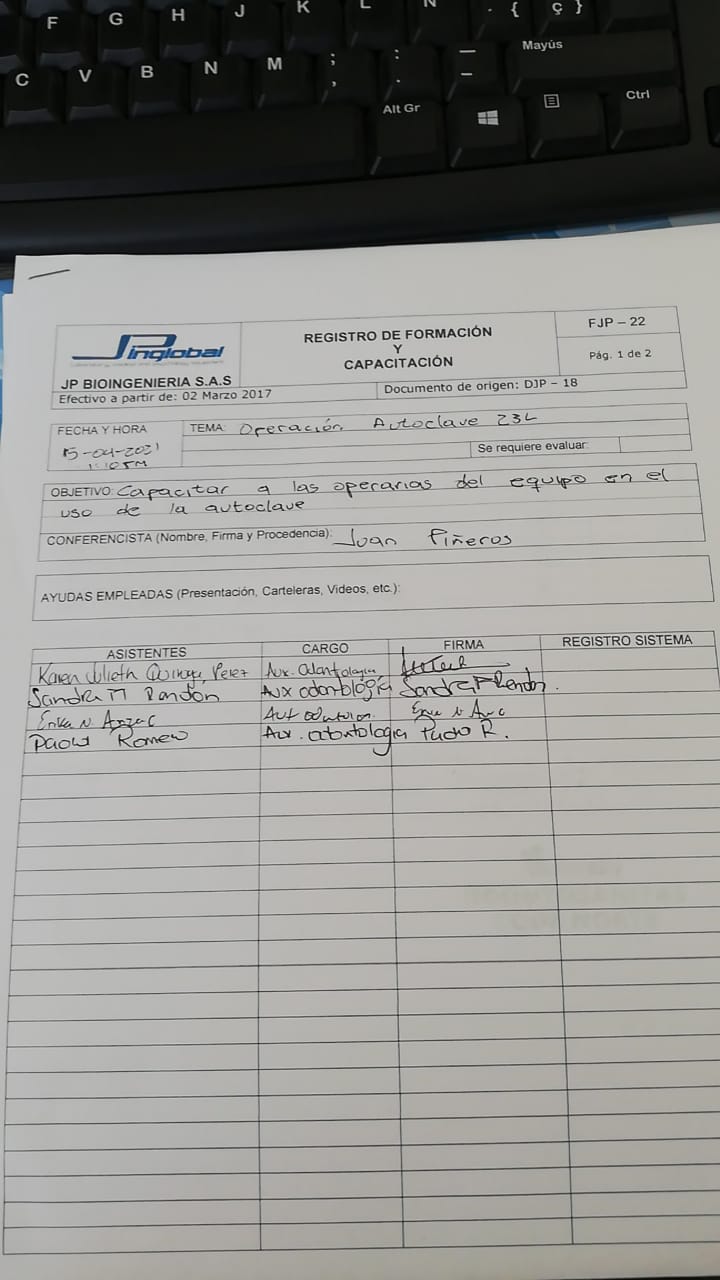 F G H J K L N . { Ç }
C V B N M ; , : . _ - Mayús
Alt Gr Ctrl
JPinglobal
JP BIOINGENIERIA S.A.S
REGISTRO DE FORMACIÓN
Y
CAPACITACIÓN
FJP – 22
Pág. 1 de 2
Efectivo a partir de: 02 Marzo 2017
Documento de origen: DJP – 18
FECHA Y HORA
15-04-2021
TEMA: Operación Autoclave 23L
Se requiere evaluar:
OBJETIVO: Capacitar a las operarias del equipo en el
uso de la autoclave
CONFERENCISTA (Nombre, Firma y Procedencia): Juan Piñeros
AYUDAS EMPLEADAS (Presentación, Carteleras, Videos, etc.):
ASISTENTES CARGO FIRMA REGISTRO SISTEMA
Karen Julieth Perez Aux. Odontologia
Sandra M Rendón Aux odontología Sandra Rendon.
Erika N.
Paola Romero Aux. odontologia R.